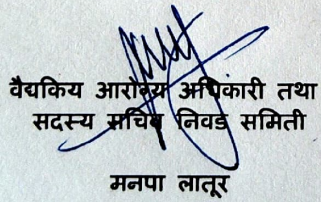 वैद्यकिय आरोग्य अधिकारी तथा
सदस्य सचिव निवड समिती
मनपा लातूर